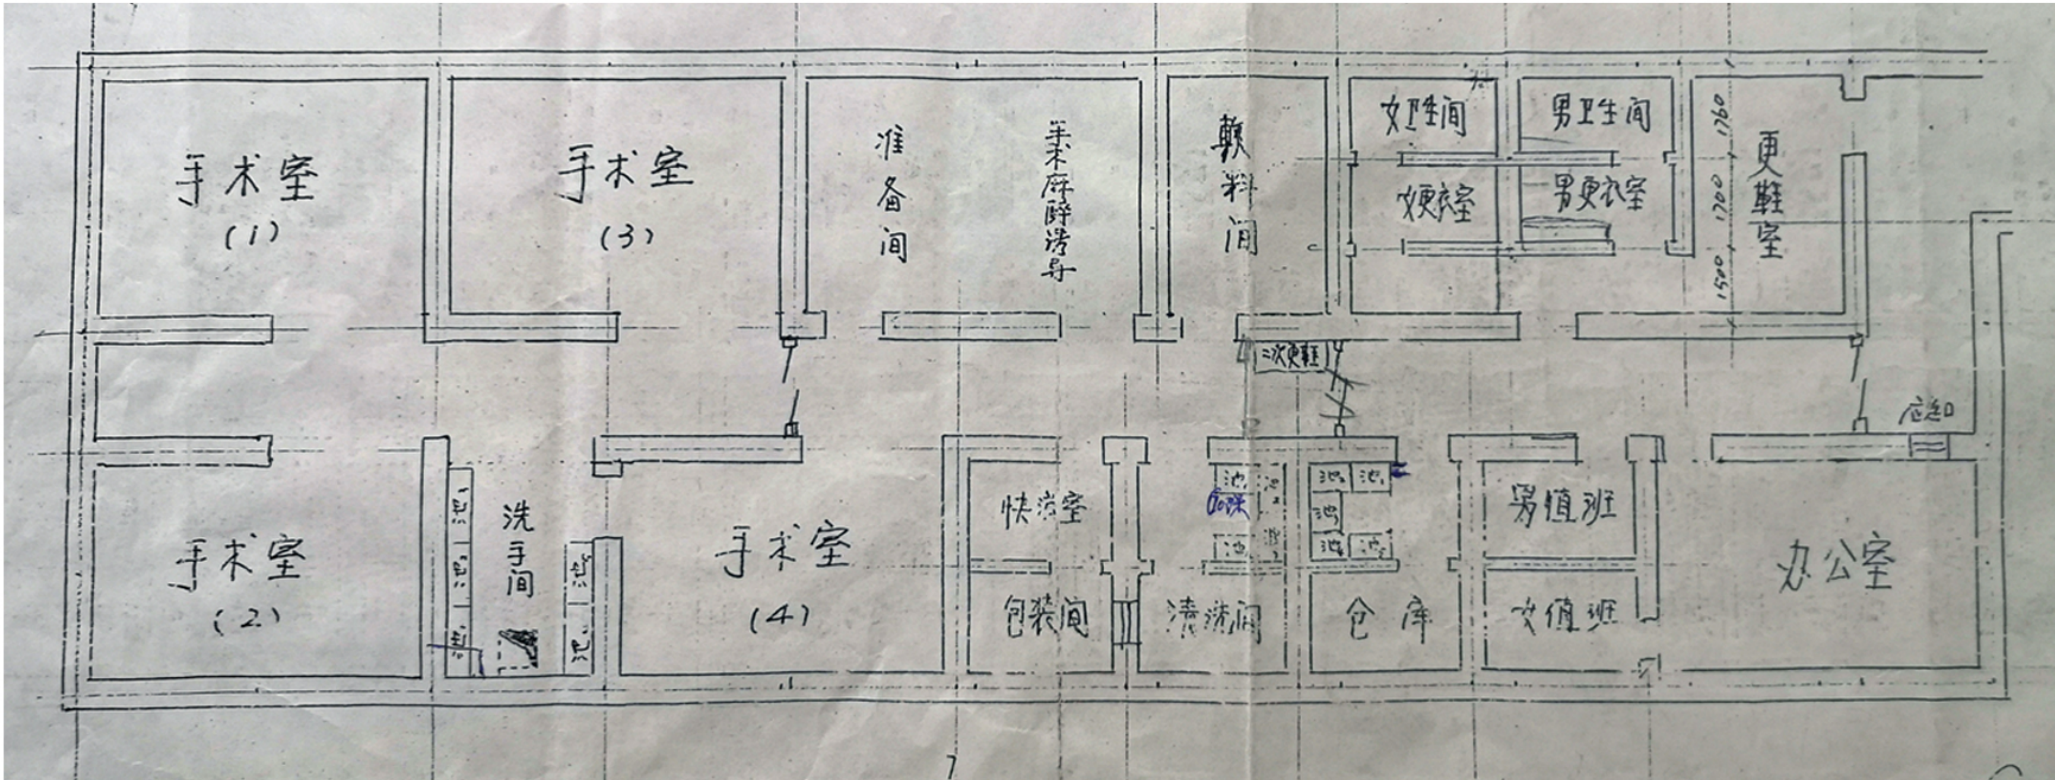 手术室
(1)
手术室
(3)
准备间
兼术麻醉诱导
敷料间
女卫生间
男卫生间
女更衣室
男更衣室
1760
1700
1500
更鞋室
二次更鞋
手术室
(2)
洗手间
池
池
池
池
池
手术室
(4)
快消室
包装间
池
池
清洗间
池
池
池
池
池
仓库
男值班
女值班
办公室